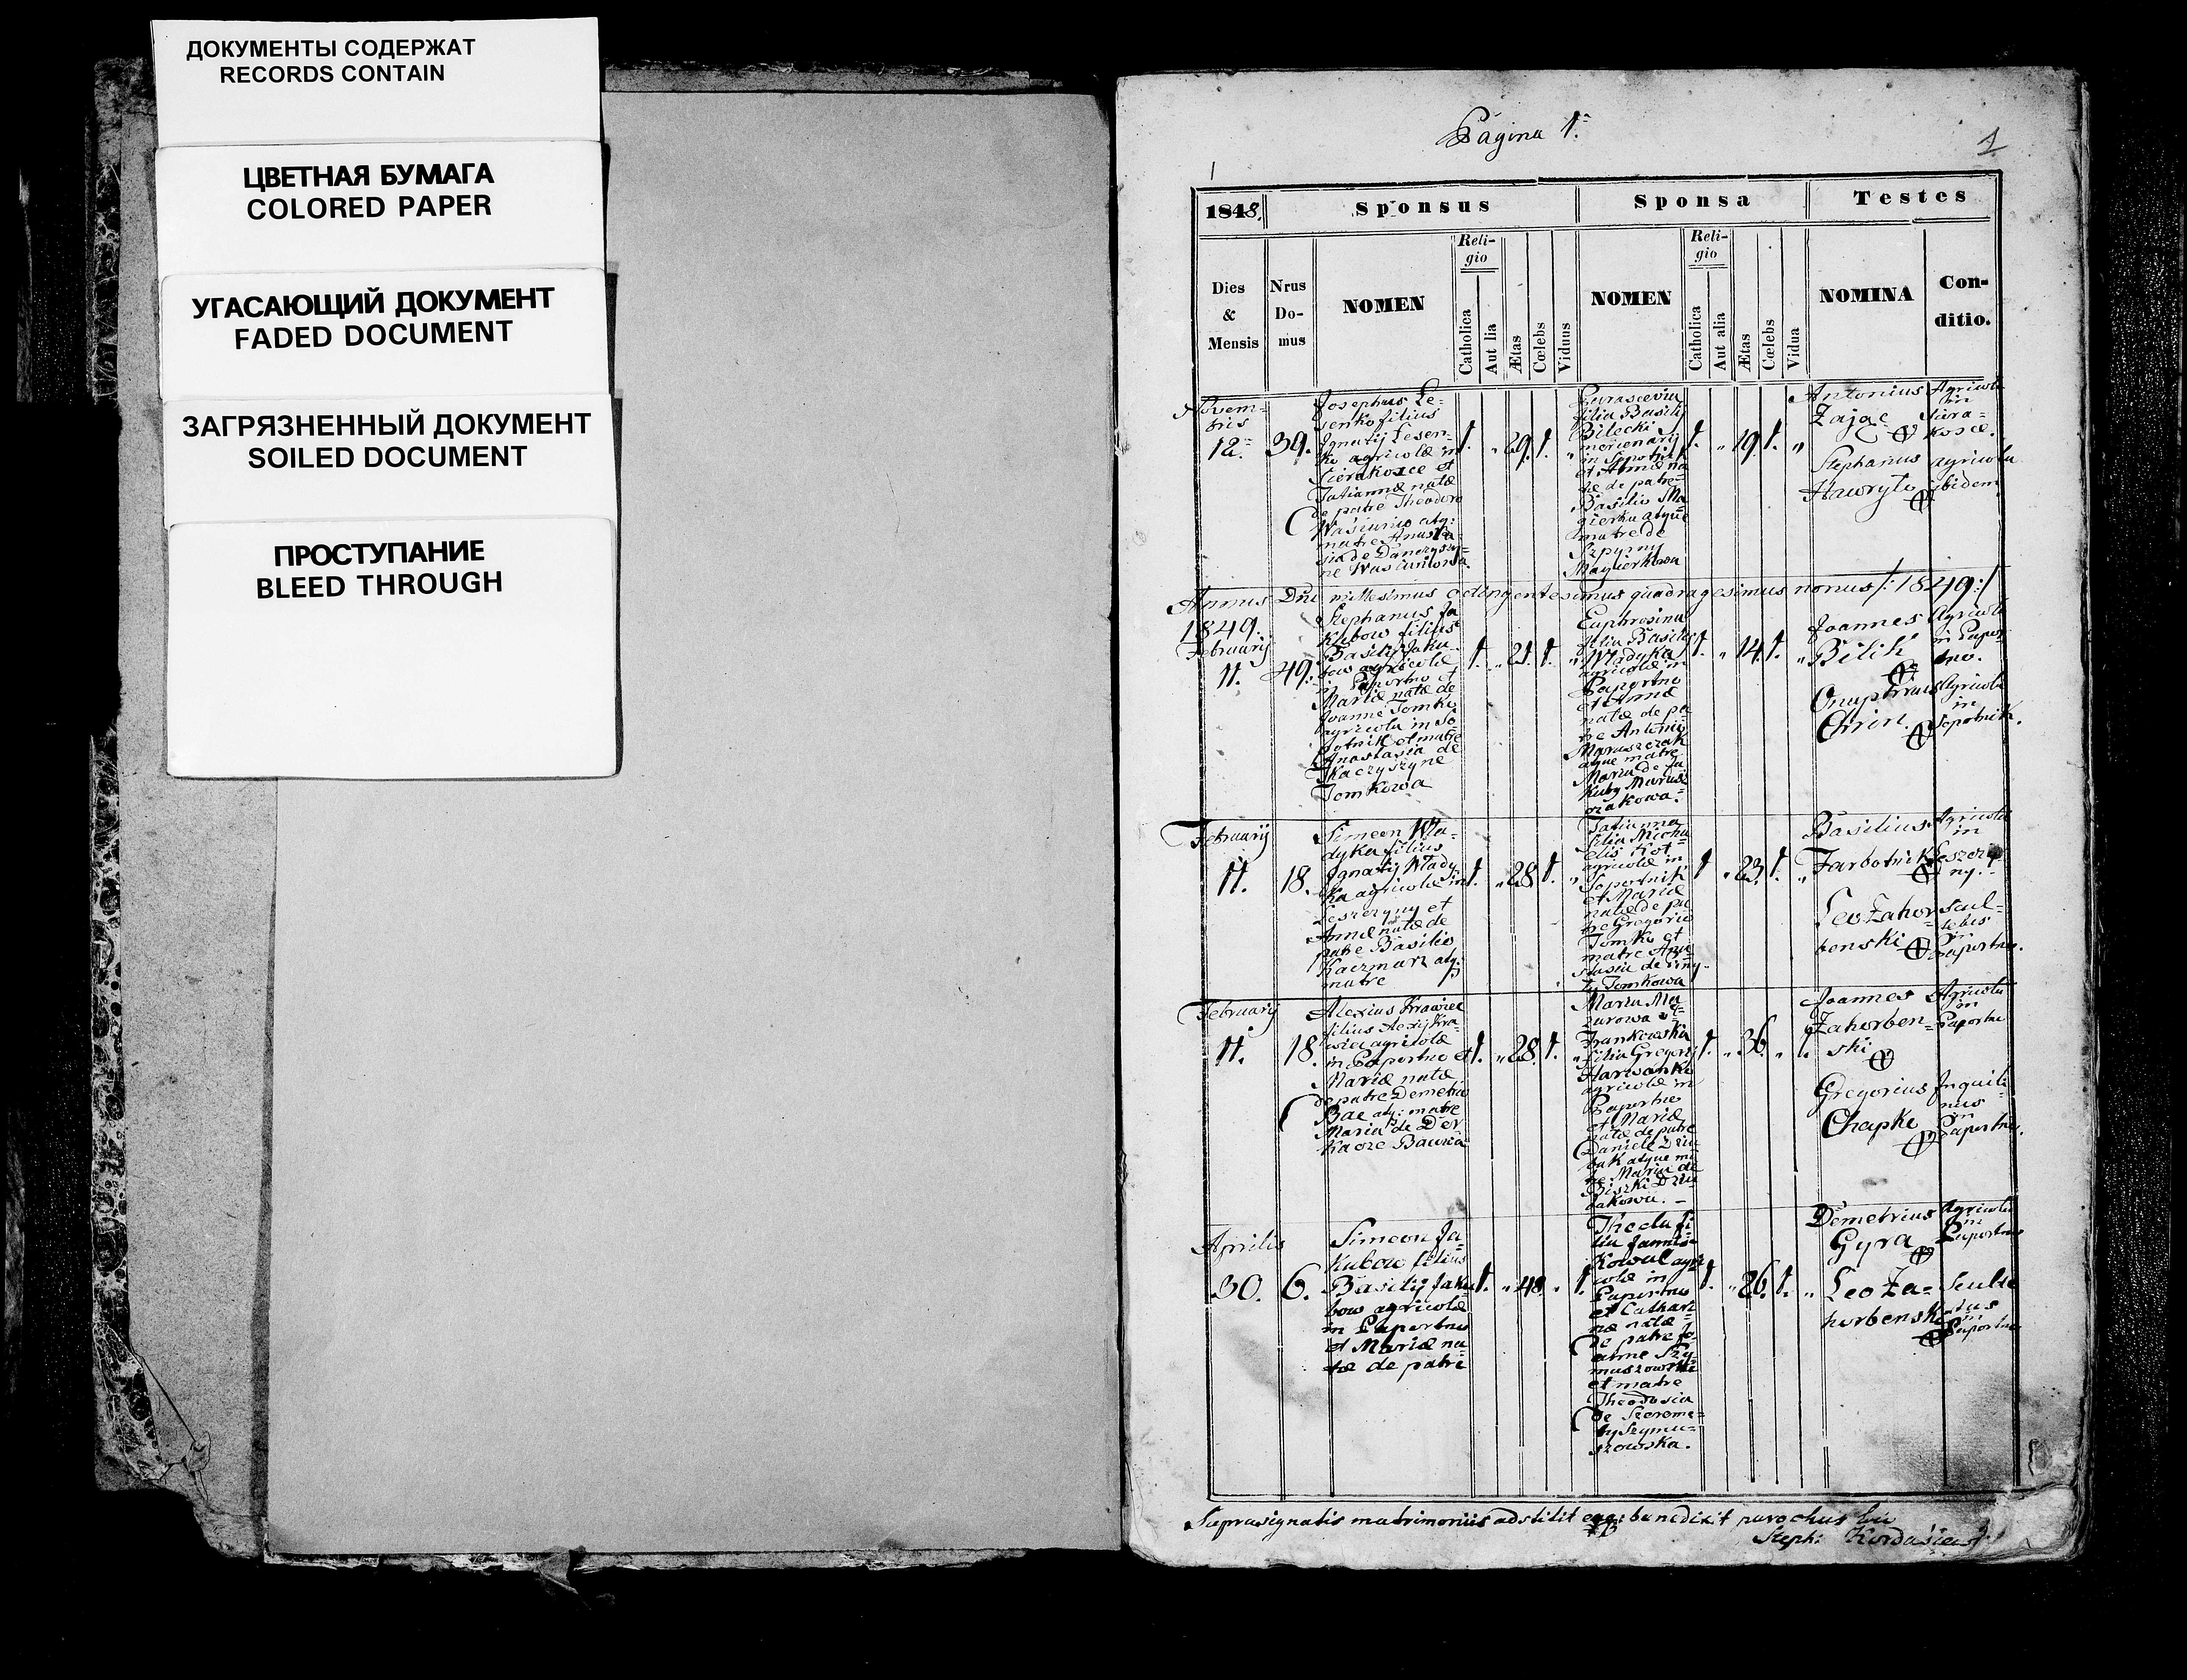 ДОКУМЕНТЫ СОДЕРЖАТ
RECORDS CONTAIN
ЦВЕТНАЯ БУМАГА
COLORED PAPER
УГАСАЮЩИЙ ДОКУМЕНТ
FADED DOCUMENT
ЗАГРЯЗНЕННЫЙ ДОКУМЕНТ
SOILED DOCUMENT
ПРОСТУПАНИЕ
BLEED THROUGH
Pagina 1.
1
1848.
Sponsus
Sponsa
Testes
Dies
&
Mensis
Nrus
Do-
mus
NOMEN
Reli-
gio
Catholica
Aut lia
Ætas
Cœlebs
Viduus
NOMEN
Reli-
gio
Catholica
Aut alia
Ætas
Cœlebs
Vidua
NOMINA
Con-
ditio.
Novem-
bris
12.
39.
Josephus Le-
senko filius
Ignatij Lesen-
ko agricolæ in
Sierakosce et
Tatiannæ natæ
de patre Theodoro
Waśiunio atq:
matre Anasta-
sia de
1. „ 29. 1. „
filia Basilij
Bilecki
mercenarij
in
et Annæ na-
tæ de patre
Basilio Ma-
gierka atque
matre de
Magierkowa
1. „ 19. 1. „
Antonius
Zając
Agricola
in
Siera-
kosce.
Stephanus
Hawryło
agricola
ibidem
Annus Dni millesimus octingentesimus quadragesimus nonus /:1849:/
1849.
Februarij
11.
49.
Stephanus Ja-
kubow filius
Basilij Jaku-
bow agricolæ
in Paportno et
Mariæ natæ de
Joanne Tomko
agricola in So-
potnik et matre
Anastasia de
Tkaczyszyne
Tomkowa
1. „ 21. 1. „
Euphrosina
filia Basilij
Władyka
agricolæ in
Paportno
et Annæ
natæ de pa-
tre Antonio
Maruszczak
atque matre
Maria de Ja-
kuby Marusz-
czakowa.
1. „ 14. 1. „
Joannes
Bilik
Agricola
in Papor-
tno.
Onuphrius
Agricola
in
Sopotnik.
Februarij
11.
18.
Simeon Wła-
dyka filius
Ignatij Włady-
ka agricolæ in
Leszczyny et
Annæ natæ de
patre Basilio
Kaczmarz atq:
matre
1. „ 28. 1. „
Tatianna
filia Micha-
elis Kot
agricolæ in
Sopotnik
et Mariæ
natæ de pa-
tre Gregorio
Tomko et
matre Ana-
stasia de
Tomkowa
1. „ 23. 1. „
Basilius
Agricola
in
Leszczy-
ny.
Leo Zahor-
benski
Scul-
tetus
in
Paportno.
Februarij
11.
18.
Alexius Krawiec
filius Alexij Kra-
wiec agricolæ
in Paportno et
Mariæ natæ
de patre Demetrio
Bac atq: matre
Maria de Der-
kacze
1. „ 28. 1. „
Maria Ma-
zurowa
Frankowska
filia Gregorij
agricolæ in
Paportno
et Mariæ
natæ de patre
Daniele
atque ma-
tre Maria de
1. „ 36. „ 1.
Joannes
Zahorben-
ski
Agricola
in
Paportno
Gregorius
Chapko
Inquili-
nus
in
Paportno.
Aprilis
30.
6.
Simeon Ja-
kubow filius
Basilij Jaku-
bow agricolæ
in Paportno
et Mariæ na-
tæ de patre
1. „ 48. „ 1.
Thecla fi-
lia Joannis
Kowal agri-
colæ in
Paportno
et Cathari-
næ natæ
de patre Jo-
anne Szy-
muszowski
et matre
Theodosia
de Szereme-
ty Szymu-
szowska.
1. „ 26. 1. „
Demetrius
Gyra
Agricola
in
Paportno
Leo Za-
horbenski
Sculte-
tus
in
Paportno
Suprasignatis matrimoniis adstitit eaq: benedixit parochus loci
Steph: Kordasiewicz